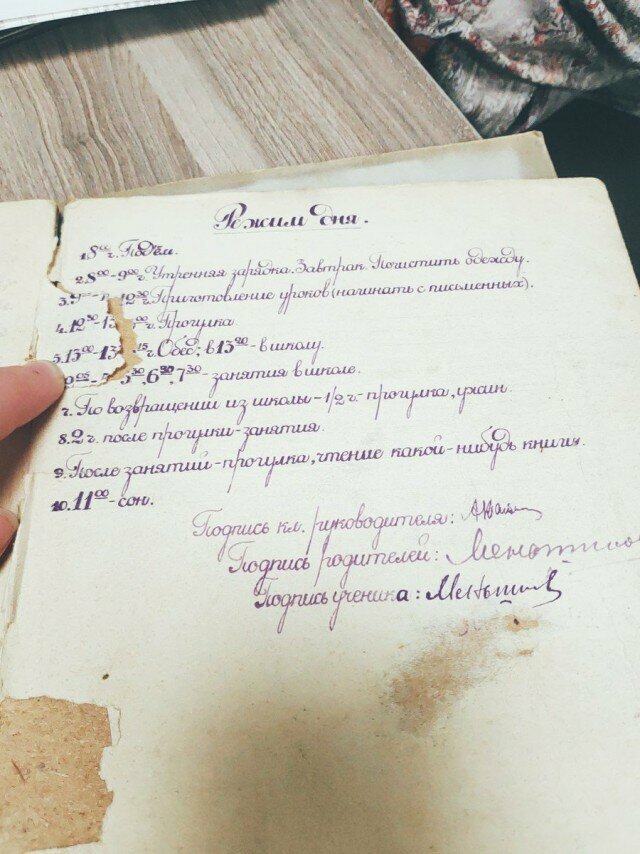 Режим дня.
1. 8⁰⁰ч. Подъём.
2. 8⁰⁰-9⁰⁰ч. Утренняя зарядка. Завтрак. Почистить одежду.
3. 12³⁰ Приготовление уроков (начинать с письменных).
4. 12³⁰-13⁰⁰ч. Прогулка.
5. 13⁰⁰-13¹⁵ч. Обед; в 13²⁰-в школу.
6³⁰, 7³⁰- занятия в школе.
7. По возвращении из школы-1/2 г.- прогулка, ужин.
8. 2 ч. после прогулки-занятия.
9. После занятий-прогулка, чтение какой-нибудь книги.
10. 11⁰⁰-сон.
Подпись кл. руководителя:
Подпись родителей:
Подпись ученика: